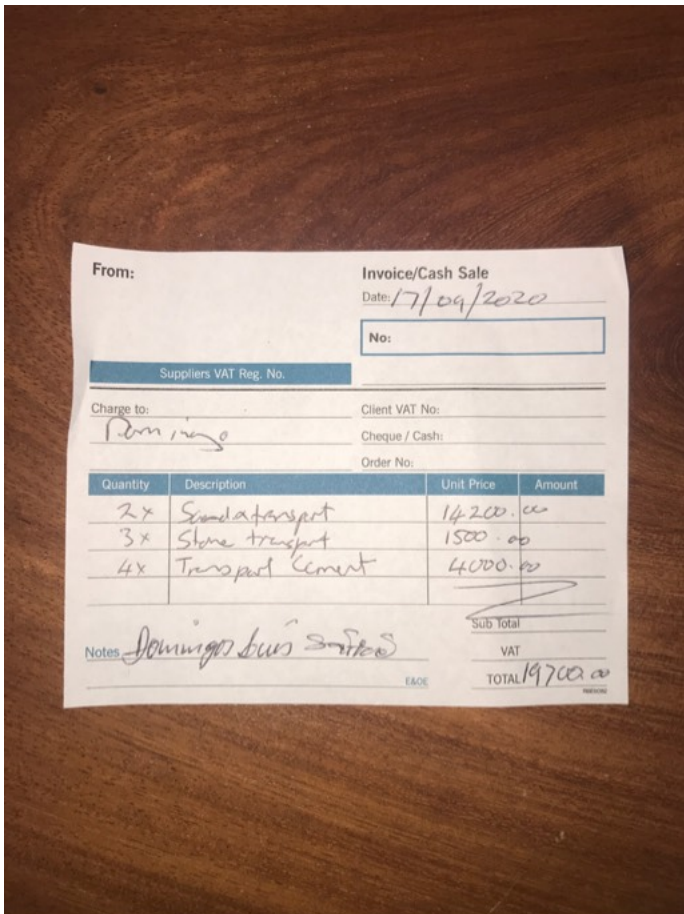 From:
Invoice/Cash Sale
Date: 17/09/2020
No:
Suppliers VAT Reg. No.
Charge to:
Client VAT No:
Domingo
Cheque / Cash:
Order No:
Quantity Description Unit Price Amount
2x Sand transport 14200.00
3x Stone transport 1500.00
4x Transport Cement 4000.00
Sub Total
Notes Domingos Luis
VAT
E&OE
TOTAL 19700.00